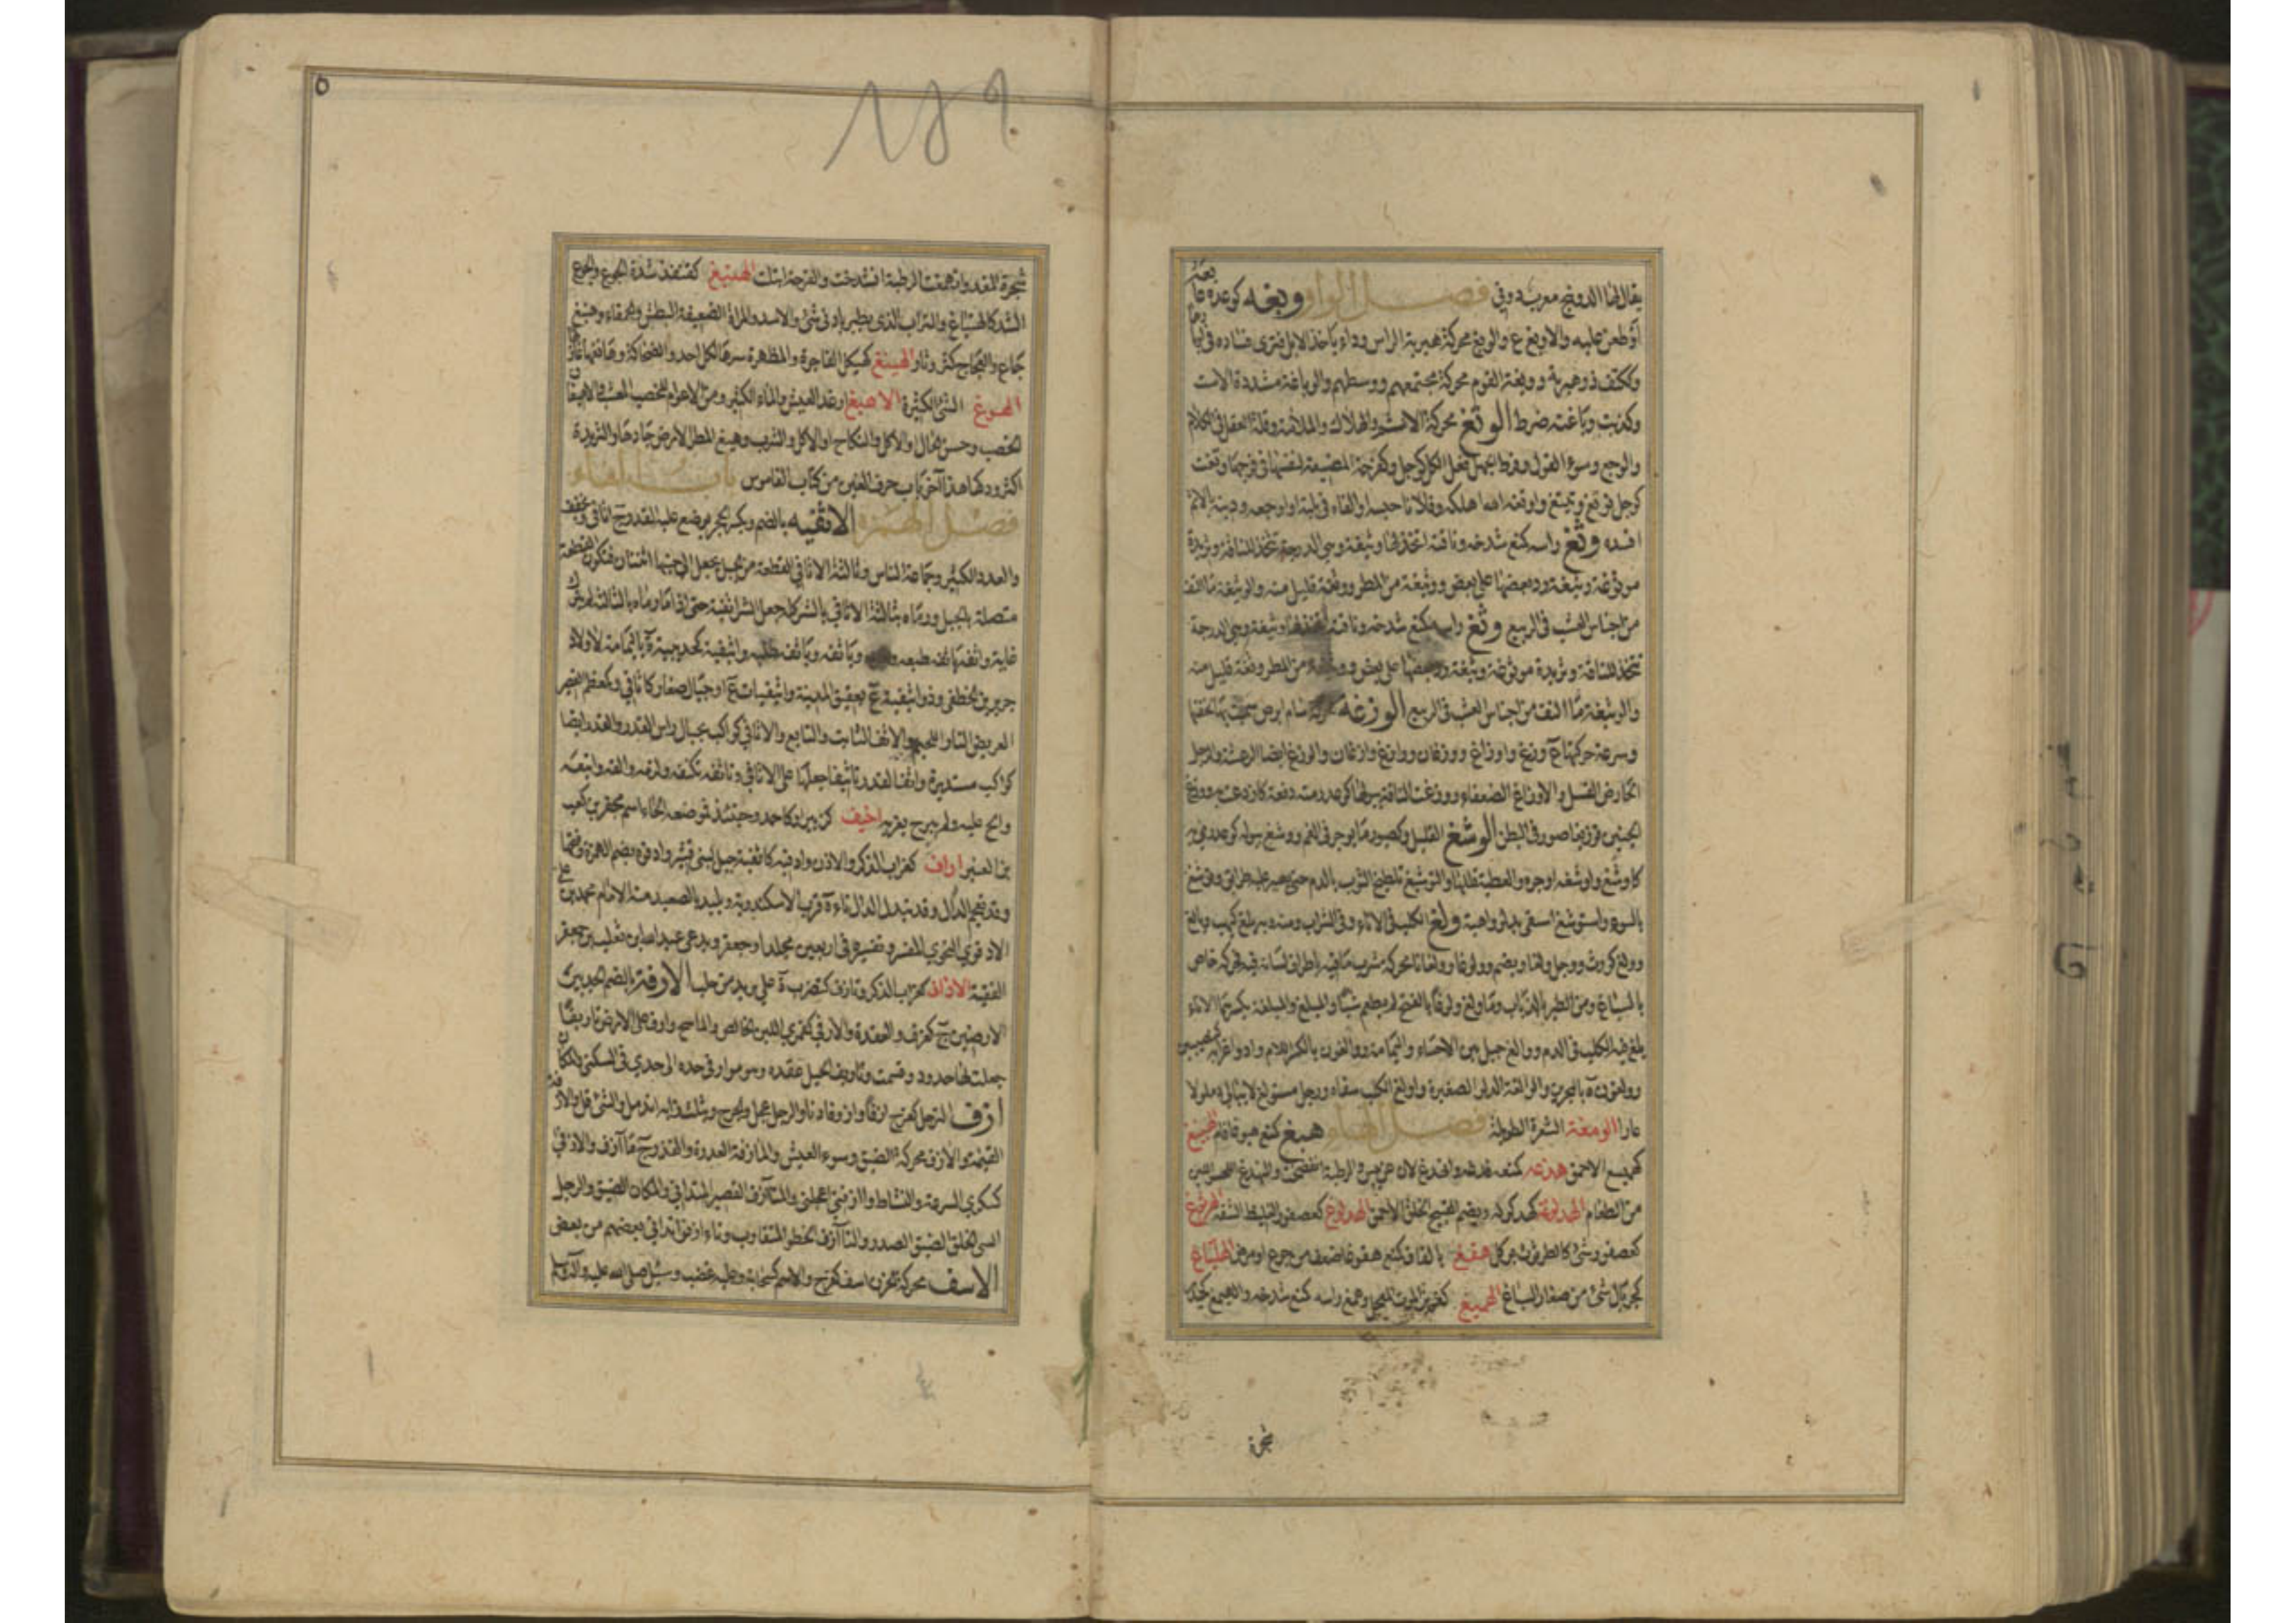 يقال لها الدوفج معرب دوفى فصل الواو وبغه كوعده عابه
أو طعن عليه والاوبغ ع والوبغ محركة هبرية الراس وداء ياخذ الابل فترى فساده في اوبارها
وككتف ذو هبرية ووبغة القوم محركة مجتمعهم ووسطهم والوباغة مشددة الاست
وكذبت وباغته ضرط الوتغ محركة الاثم والهلاك والملامة وقلة العقل في الكلام
والوجع وسوء القول وفرط الجهل فعل الكل كوجل وكفرحة المضيعة لنفسها في فرجها وتغت
كوجل توتغ وتيتغ واوتغه الله اهلكه وفلانا حبسه او القاه في بلية او اوجعه ودينه بالاثم
افسده وثغ راسه كمنع شدخه وناقته اتخذ لها وثيغة وهي الدرجة تتخذ للناقة وثريدة
موثوغة وثيغة رد بعضها على بعض ووثيغة من المطر ووثغة قليل منه والوثيغة ما التف
من اجناس العشب في الربيع وثغ راسه كمنع شدخه وناقته اتخذ لها وثيغة وهي الدرجة
تتخذ للناقة وثريدة موثوغة وثيغة رد بعضها على بعض من المطر ووثغة قليل منه
والوثيغة ما التف من اجناس العشب في الربيع الوزغة محركة سام ابرص سميت بها لخفتها
وسرعة حركتها ج وزغ واوزاغ ووزغان ووزاغ وازغان والوزغ ايضا الرعشة والرجل
الحارض الفشل والاوزاغ الضعفاء ووزغت الناقة ببولها كوعد رمته دفعة كاوزغت به ووزغ
الجنين توزيغا صور في البطن الوشغ القليل وكصبور ما يوجر في الفم ووشغ ببوله كوعد رمى به
كاوشغ واوشغه اوجره والعطية قللها والتوشيغ تلطيخ الثوب بالدم حتى يصير عليه طرائق وتوشغ
بالسوء واستوشغ استقى بدلو واهية ولغ الكلب في الاناء وفي الشراب ومنه وبه يلغ كيهب ويالغ
وولغ كورث ووجل ولغا ويضم وولوغا وولغانا محركة شرب ما فيه باطراف لسانه فيه فحركه خاص
بالسباع ومن الطير بالذباب وما ولغ ولوغا بالفتح لم يطعم شيئا والميلغ والميلغة بكسرهما الاناء
يلغ فيه الكلب في الدم ووالغ جبل بين الاحساء واليمامة ووالغون بالكسر
وولغون ة بالبحرين والوالغة الدلو الصغيرة واولغ الكلب سقاه ورجل مستولغ لا يبالي ذما ولا
عارا الومغة الشعرة الطويلة فصل الهاء هبغ كمنع هبوغا نام الهبيغ
كهميسع الاحمق هدغه كمنعه فدغه وانهدغ لان عن يبس والرطبة انفضخت
من الطعام الهدلوغة كهركولة ويضم القبيح الخلق الاحمق الهدلوغ كعصفور الغليظ الشفة الهرنوغ
كعصفور شيء كالطرثوث يؤكل هفغ بالفا كمنع هفوغا ضعف من جوع او مرض الهلياغ
كجريال شيء من صغار السباغ الهميغ كغريل الموت المعجل وهمغ راسه كمنع شدخه والهميغ كحيدر
شجرة
١٨٩
٥
شجرة المغد وانهمغت الرطبة انشدخت والقرحة ابتلت الهنبغ كقنفذ شدة الجوع والجوع
الشديد كالهنباغ والتراب الذي يطير بادنى شيء والاسد والمراة الضعيفة البطش والحمقاء وهنبغ
جاع والعجاج كثر وثار الهينغ كهيكل الفاجرة والمظهرة سرها لكل احد والضحاكة وهانغها غازلها
الهوغ الشيء الكثير الاهيغ ارغد العيش والماء الكثير ومن الاعوام المخصب المعشب والاهيغان
الخصب وحسن الحال والاكل والنكاح او الاكل والشرب وهيغ المطر الارض جادها والثريدة
اكثر ودكها هذا آخر باب حرف الغين من كتاب القاموس باب الفاء
فصل الهمزة الاثفيه بالضم وبكسر الحجر يوضع عليه القدر ج اثافي ويخفف
والعدد الكثير وجماعة الناس وثالثة الاثافي القطعة من الجبل يجعل الى جنبها اثنتان فتكون القطعة
متصلة بالجبل ورماه بثالثة الاثافي بالشر كله جعل الشر اثفية حتى اذا رماه بالثالثة لم يترك
غاية واثفه ياثفه طبعه وياثفه طلبه واثيفية كحديبية ة باليمامة لاولاد
جرير بن الخطفى وذو اثيفية ع بعقيق المدينة واثيفيات ع او جبال صغار كاثافي وكمعظم القصير
العريض التار اللحيم والاثف الثابت والتابع والاثافي كواكب بحيال راس القدر والقدر ايضا
كواكب مستديرة واثف القدر تاثيفا جعلها على الاثافي وتاثفه تكنفه ولزمه والفه واتبعه
والح عليه ولم يبرح يغريه اخيف كزبير او كاحمد وحينئذ فموضعه الخاء اسم مجفر بن كعب
بن العنبر اداف كغراب الذكر والاذن وادفية كاثفية جبل لبني قشير وادفوة بضم الهمزة وفتحها
وقد تفتح الدال وقد تبدل الدال تاء ة قرب الاسكندرية وبليد بالصعيد منه الامام محمد بن علي
الادفوي النحوي المفسر وتفسيره في اربعين مجلدا وجعفر ويدعى عبد الله بن ثعلب بن جعفر
الفقيه الاذاف كغراب الذكر وتاذف كتضرب ة على بريد من حلب الارفة بالضم الحد بين
الارضين ج كغرف والعقدة والارفي كقمري اللبن الخالص والماسح وارف على الارض تاريفا
جعلت لها حدود وقسمت وتاريف الحبل عقده وهو موارفي حده الى حدي في السكنى والمكان
ازف الترحل كفرح ازفا وازوفا دنا والرجل عجل والجرح ويثلث زايه اندمل والشيء قل والازفة
القيمة والازف محركة الضيق وسوء العيش والمازفة العذرة والقذر ج مآزف والازفى
كسكرى السرعة والنشاط وآزفني اعجلني والمتآزف القصير المتداني والمكان الضيق والرجل
السيئ الخلق الضيق الصدر والتآزف الخطو المتقارب وتآزفوا تدانى بعضهم من بعض
الاسف محركة الحزن اسف كفرح والاسم كسحابة وعليه غضب وسئل صلى الله عليه وآله وسلم